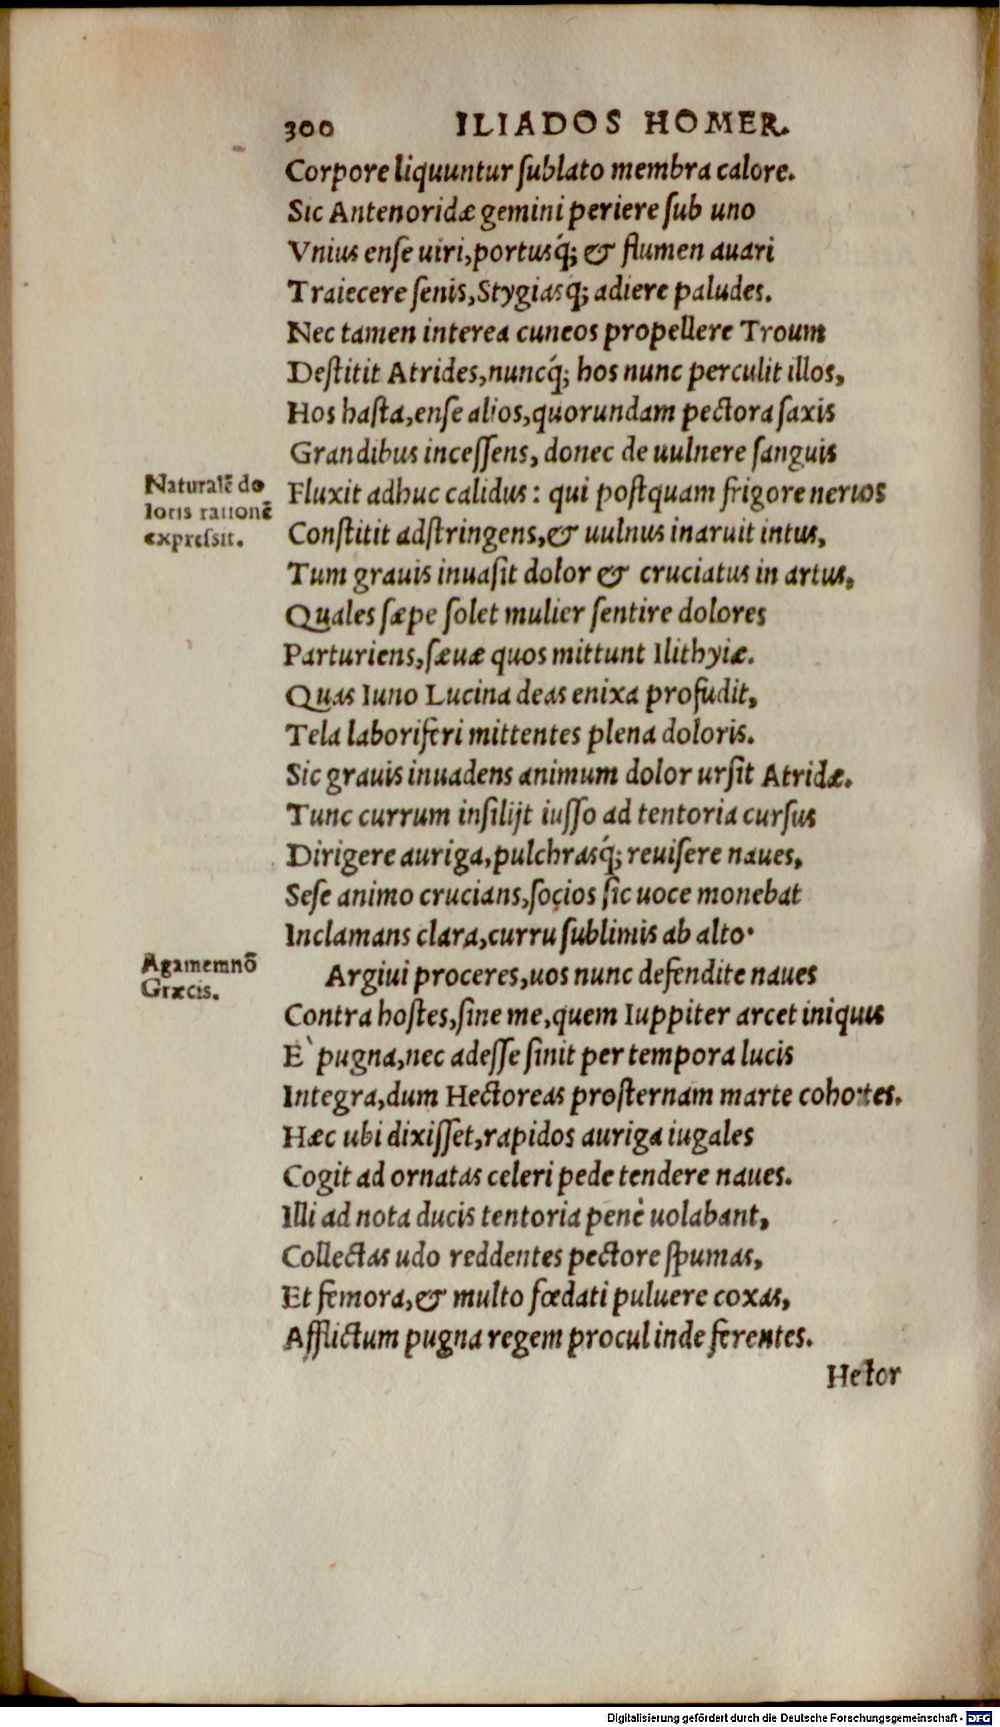 300 ILIADOS HOMER.
Corpore liquuntur ſublato membra calore.
Sic Antenoridæ gemini periere ſub uno
Vnius enſe uiri, portusq́; & flumen auari
Traiecere ſenis, Stygiasq́; adiere paludes.
Nec tamen interea cuneos propellere Troum
Deſtitit Atrides, nuncq́; hos nunc perculit illos,
Hos haſta, enſe alios, quorundam pectora ſaxis
Grandibus inceſſens, donec de uulnere ſanguis
Naturalẽ do
loris rationẽ
expreſsit.
Fluxit adhuc calidus: qui poſtquam frigore neruos
Conſtitit adſtringens, & uulnus inaruit intus,
Tum grauis inuaſit dolor & cruciatus in artus,
Quales ſæpe ſolet mulier ſentire dolores
Parturiens, ſæuæ quos mittunt Ilithyiæ.
Quas Iuno Lucina deas enixa profudit,
Tela laboriferi mittentes plena doloris.
Sic grauis inuadens animum dolor urſit Atridæ.
Tunc currum inſilijt iuſſo ad tentoria curſus
Dirigere auriga, pulchrasq́; reuiſere naues,
Seſe animo crucians, ſocios ſic uoce monebat
Inclamans clara, curru ſublimis ab alto.
Agamemnõ
Græcis.
Argiui proceres, uos nunc defendite naues
Contra hoſtes, ſine me, quem Iuppiter arcet iniquus
E` pugna, nec adeſſe ſinit per tempora lucis
Integra, dum Hectoreas proſternam marte cohortes.
Hæc ubi dixiſſet, rapidos auriga iugales
Cogit ad ornatas celeri pede tendere naues.
Illi ad nota ducis tentoria penè uolabant,
Collectas udo reddentes pectore ſpumas,
Et femora, & multo fœdati puluere coxas,
Afflictum pugna regem procul inde ferentes.
Hector
Digitalisierung gefördert durch die Deutsche Forschungsgemeinschaft - DFG